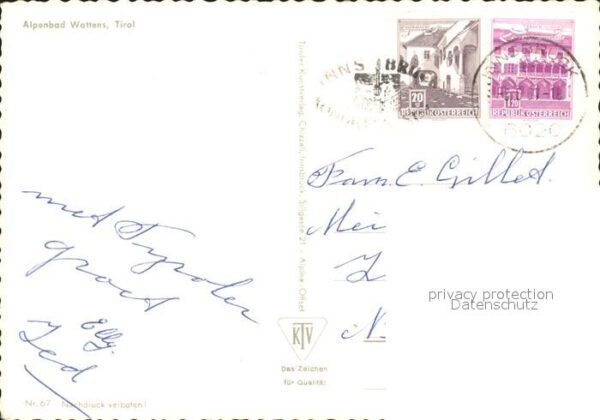 Alpenbad Wattens, Tirol
met Tyroler
groet
Elly
Nr. 67 Nachdruck verboten!
Tiroler Kunstverlag, Chizzali, Innsbruck, Sillgasse 21 - Alpine Offset
KTV
Das Zeichen
für Qualität!
INNSBRUCK
20
REPUBLIK ÖSTERREICH
1.20
REPUBLIK ÖSTERREICH
6020
Fam. E. Gillet.
Mei
L
N
privacy protection
Datenschutz